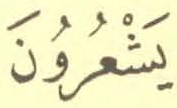 يَشْعُرُوْنَ